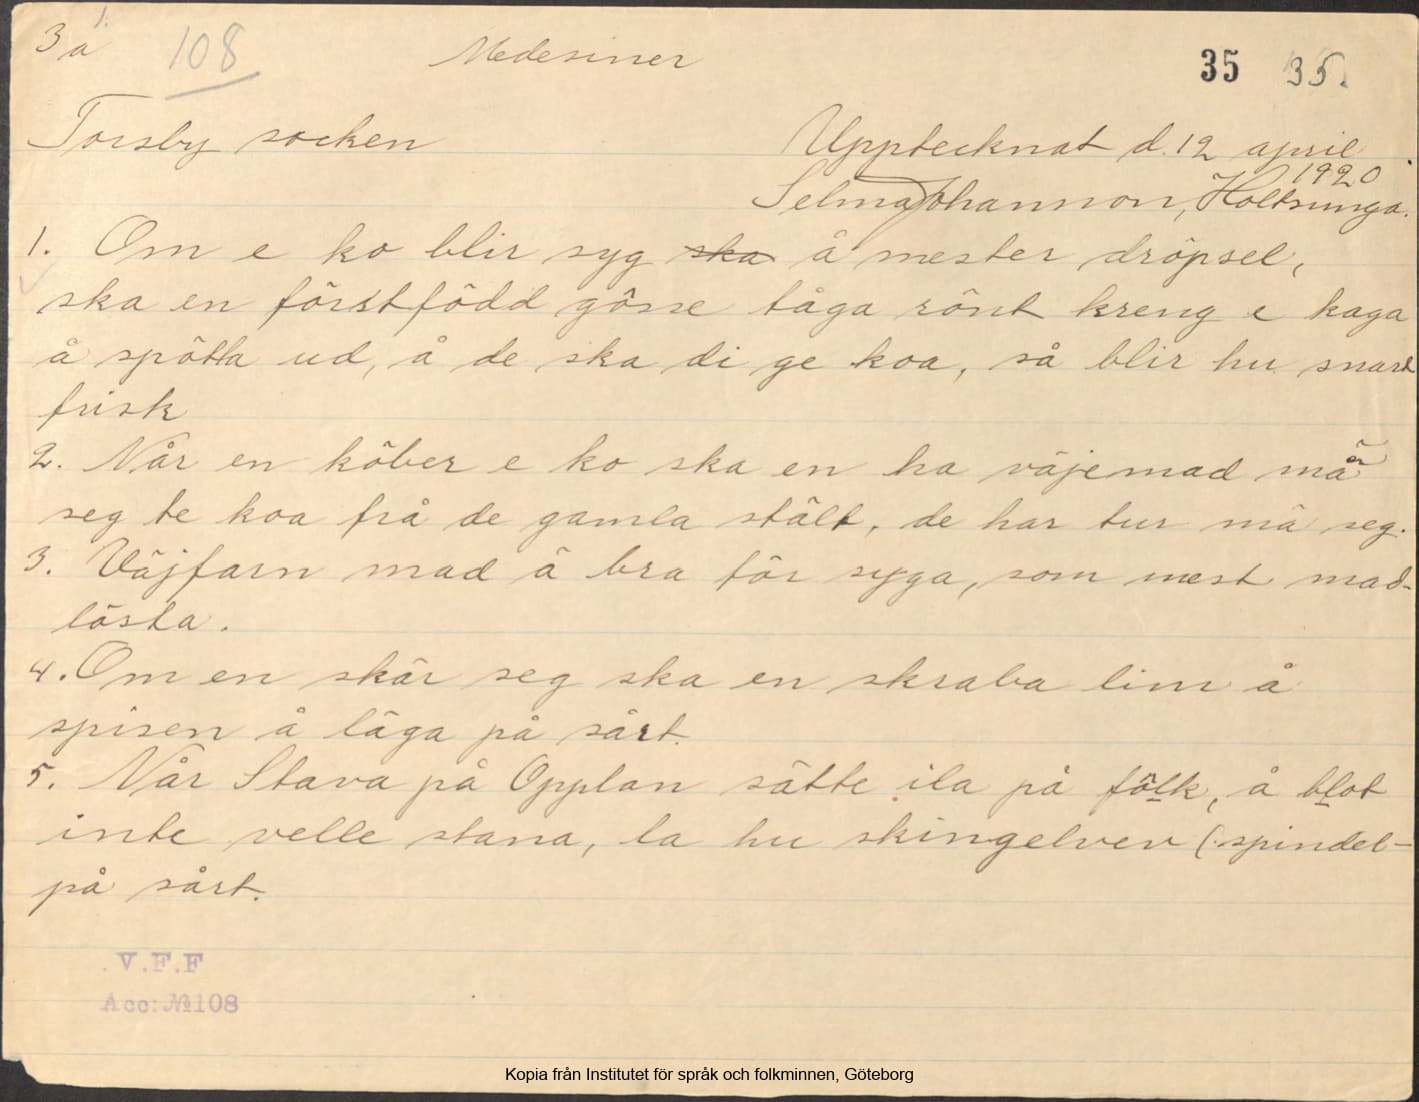 3a 1.
108
Medesiner
35 35.
Torsby socken
Upptecknat d. 12 april
1920
Selma Johannson, Holtsunga.
1. Om e ko blir syg ska å mester dröpsel,
ska en förstfödd gösse tåga rönt kreng e kaga
å spötta ud, å de ska di ge koa, så blir hu snart
frisk
2. Når en köber e ko ska en ha väjemad mä
seg te koa frå de gamla stält, de har tur mä seg.
3. Väjfarn mad ä bra för syga, som mest mad-
lösta.
4. Om en skär seg ska en skraba lim å
spisen å läga på sårt.
5. Når Stava på Opplan sätte ila på fölk, å blot
inte velle stana, la hu skingelvev (spindel-
på sårt.
V.F.F
Acc: № 108
Kopia från Institutet för språk och folkminnen, Göteborg